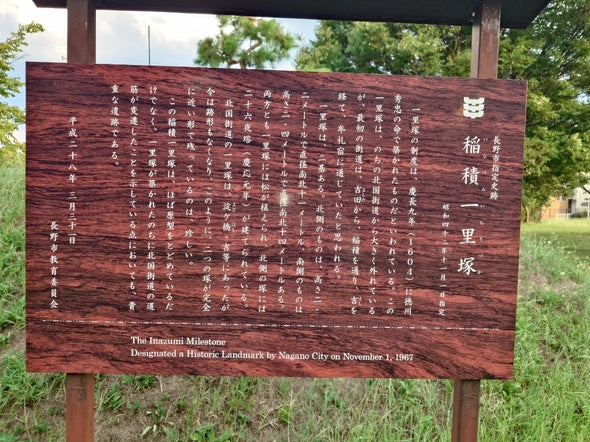 長野市指定史跡
いなづみいちりづか
稲積一里塚
昭和四十二年十一月一日指定
一里塚の制度は、慶長九年(1604)に徳川
秀忠の命で築かれたものだといわれている。この
一里塚は、のちの北国街道から大きく外れている
が、最初の街道は、吉田から、稲積を通り、吉を
経て、牟礼宿に通じていたと思われる。
一里塚は、二基ある。北側のものは、高さ二・
二メートルで直径南北十一メートル、南側のものは
高さ二・四メートルで、南北十四メートルある。
両方とも一里塚には松が植えられ、北側の塚には
二十六夜塔(慶応元年)が建てられている。
北国街道の一里塚は、淀ケ橋、吉等にあったが
今は跡形もなくなり、このように、二つの塚が完全
に近い形で残っているのは、珍しい。
この稲積一里塚は、ほぼ原型をとどめているだ
けでなく、一里塚が築かれたのちに北国街道の道
筋が変遷したことを示している点においても、貴
重な遺跡である。
平成二十八年三月三十一日
長野市教育委員会
The Inazumi Milestone
Designated a Historic Landmark by Nagano City on November 1, 1967